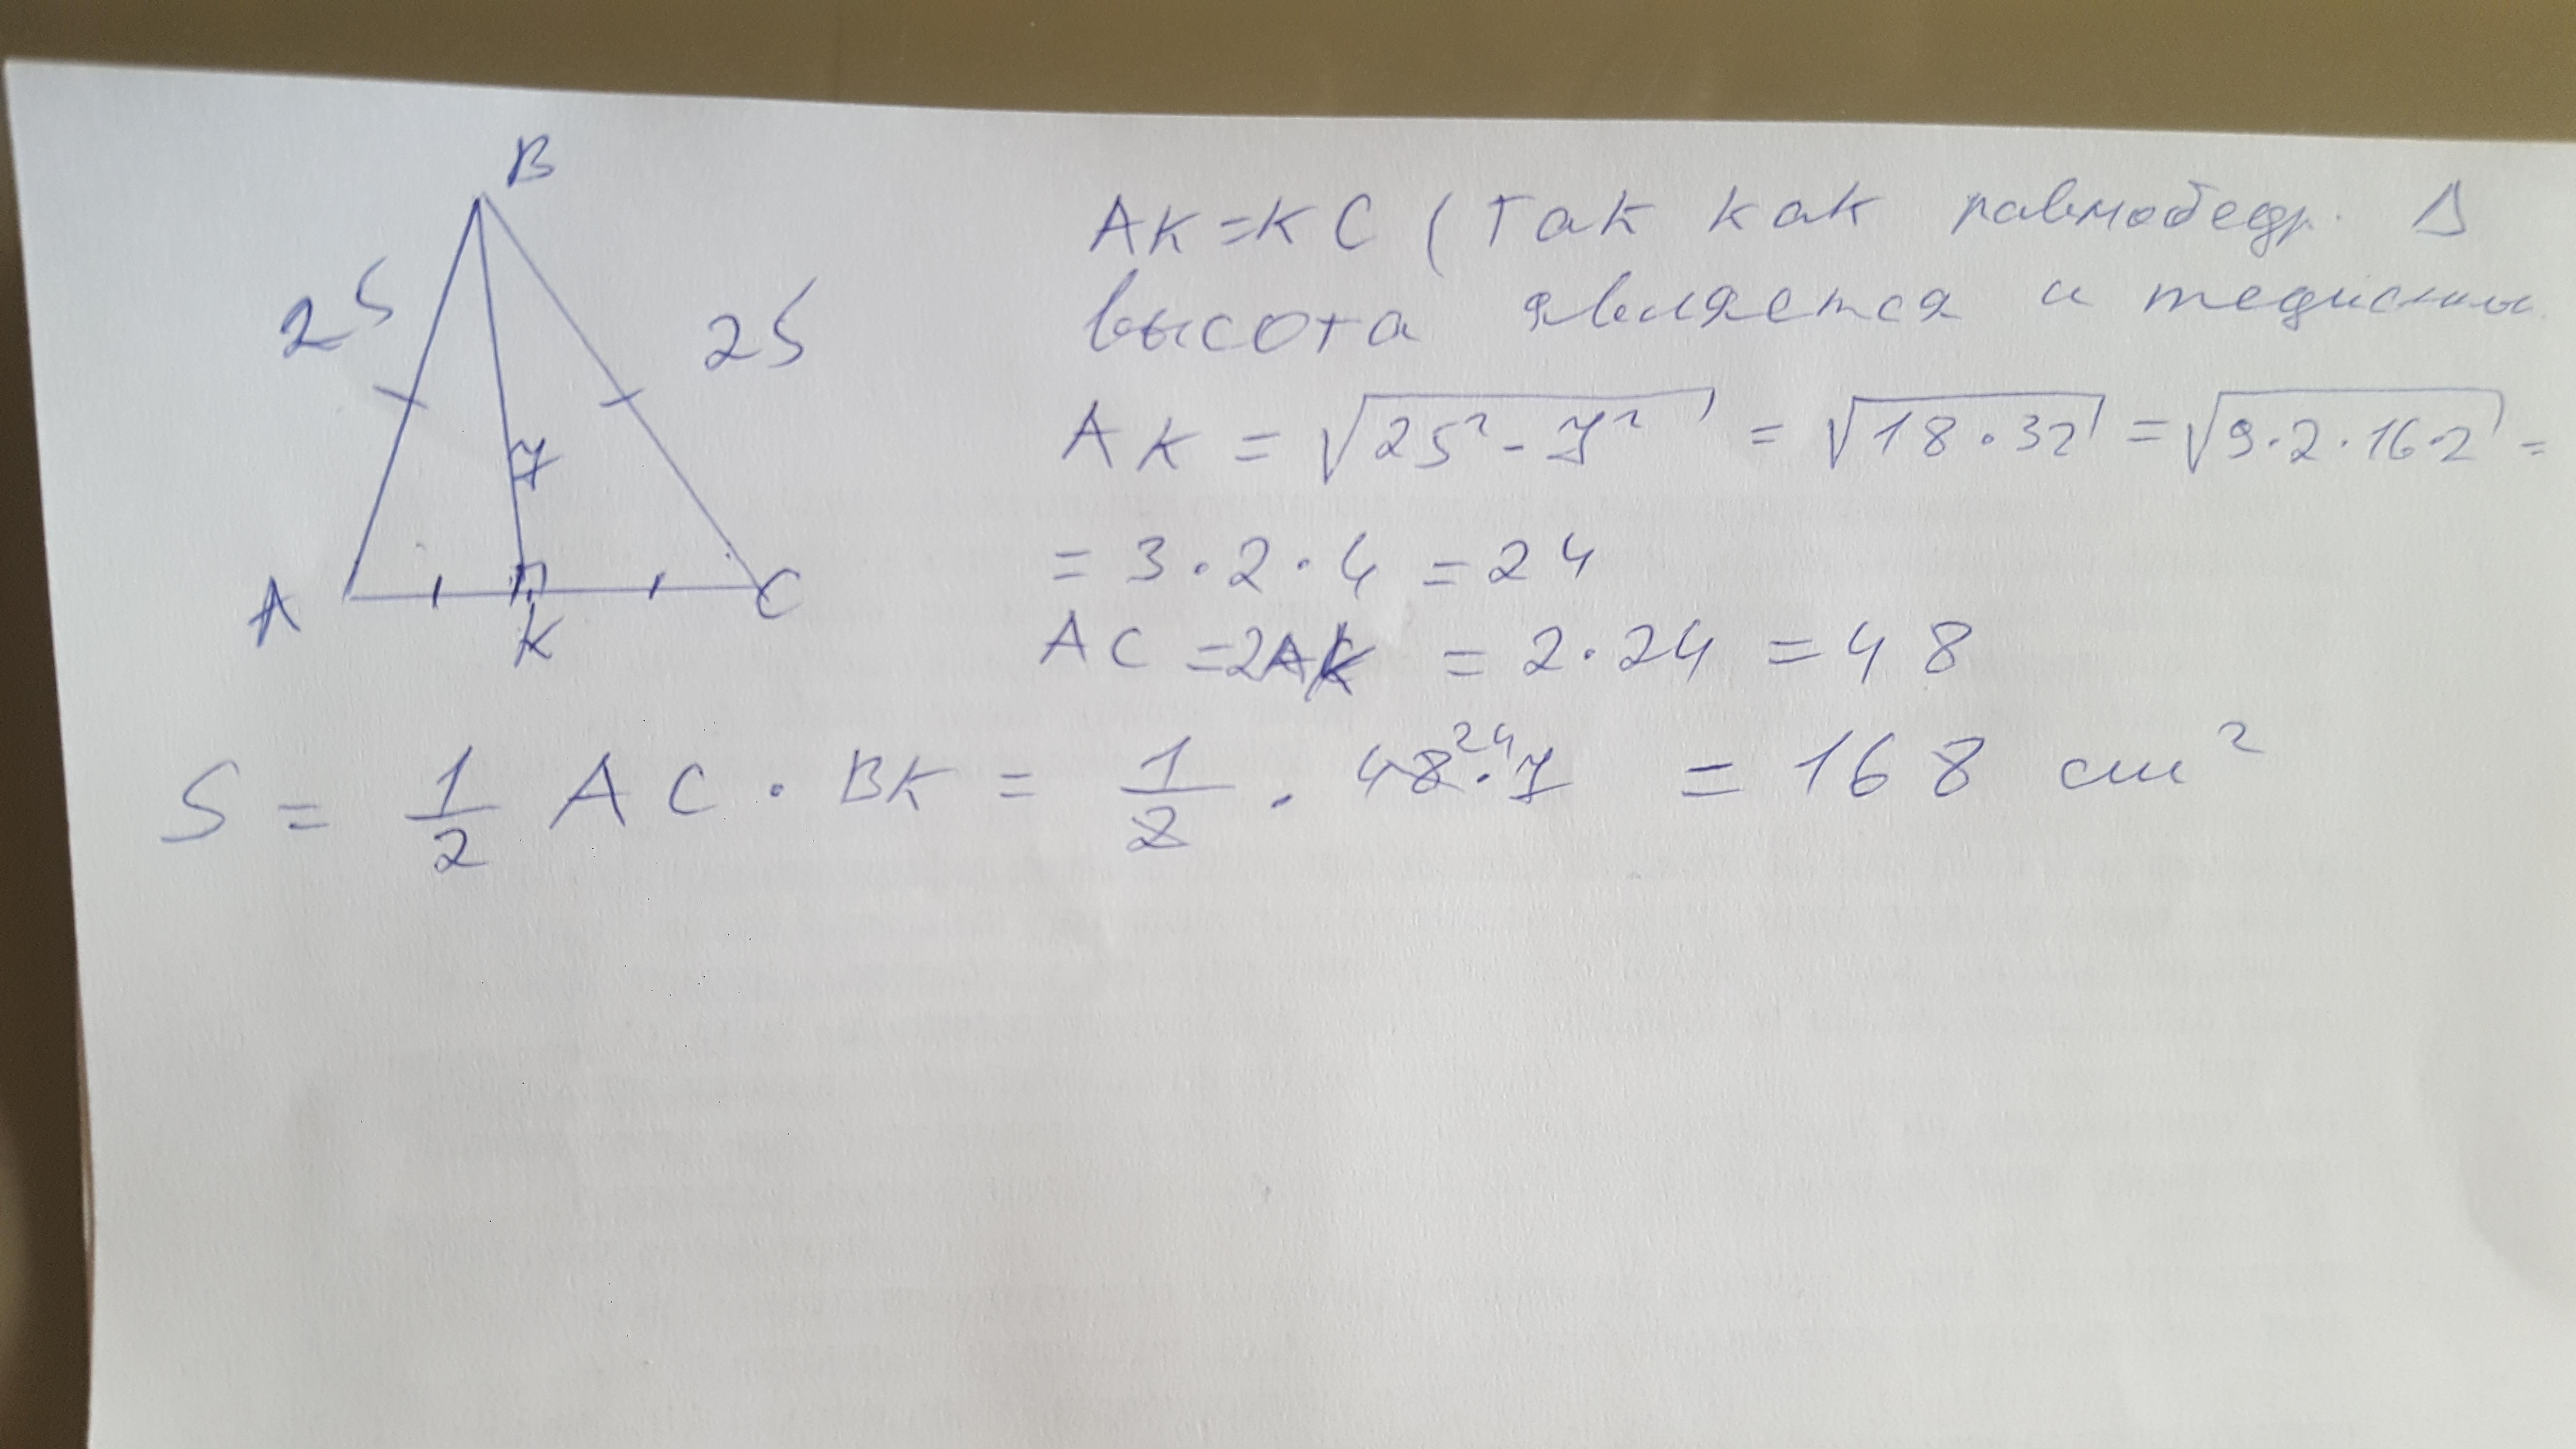 B
25
25
7
A
K
C
AK = KC (Так как равнобедр. Δ
высота является и медианы
AK = √(25² - 7²) = √(18 · 32) = √(9 · 2 · 16 · 2) =
= 3 · 2 · 4 = 24
AC = 2AK = 2 · 24 = 48
S = 1/2 AC · BK = 1/2 · 48 24 · 7 = 168 см²